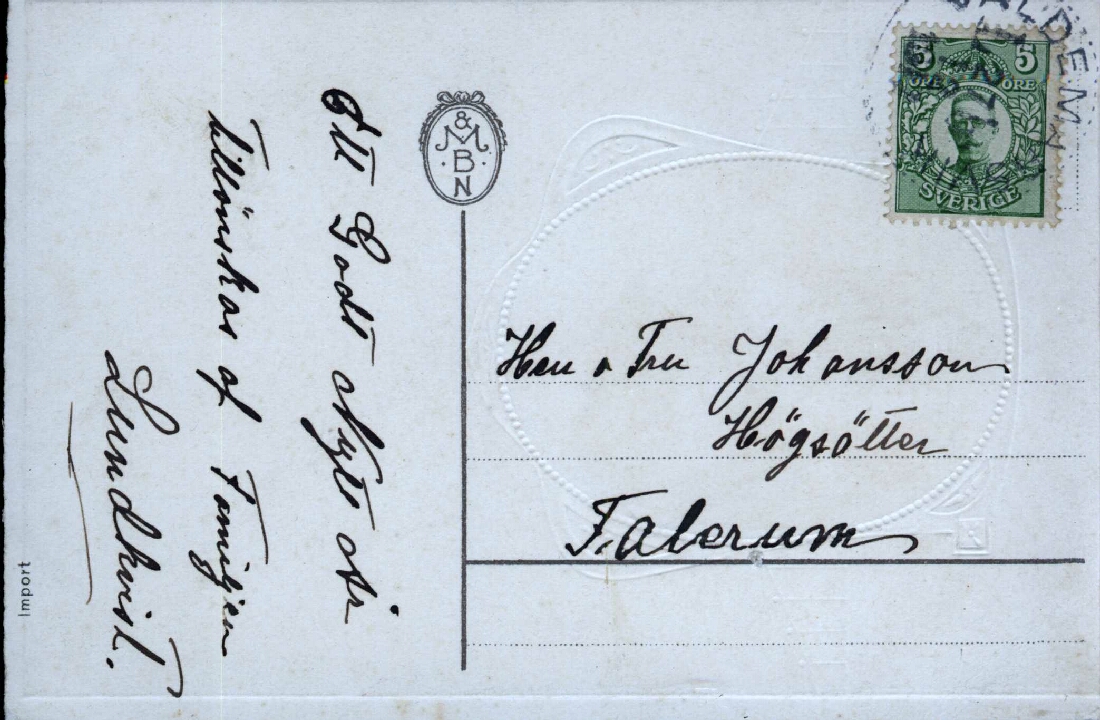 Ett Godt Nytt År
tillönskas af Familjen
Lundkvist.
Import
& M B N
5 5
ÖRE ÖRE
SVERIGE
Herr o Fru Johansson
Högsätter
Falerum